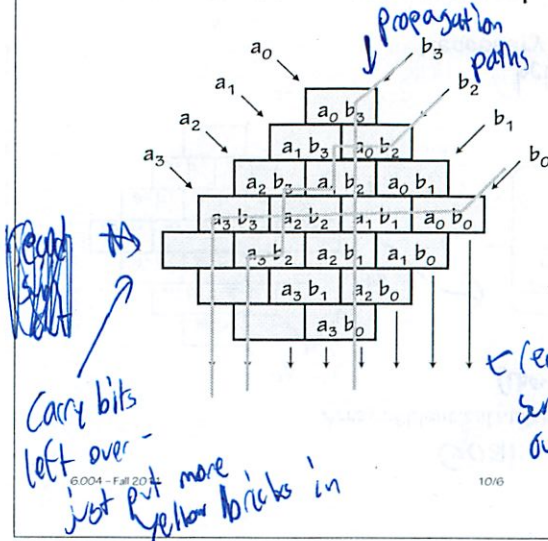 propagation
paths
a₀
b₃
a₁
b₂
a₂
b₁
a₃
b₀
a₀ b₃
a₁ b₃ a₀ b₂
a₂ b₃ a₁ b₂ a₀ b₁
a₃ b₃ a₂ b₂ a₁ b₁ a₀ b₀
a₃ b₂ a₂ b₁ a₁ b₀
a₃ b₁ a₂ b₀
a₃ b₀
Carry bits
left over -
just put more
yellow bricks in
6.004 - Fall 20
10/6